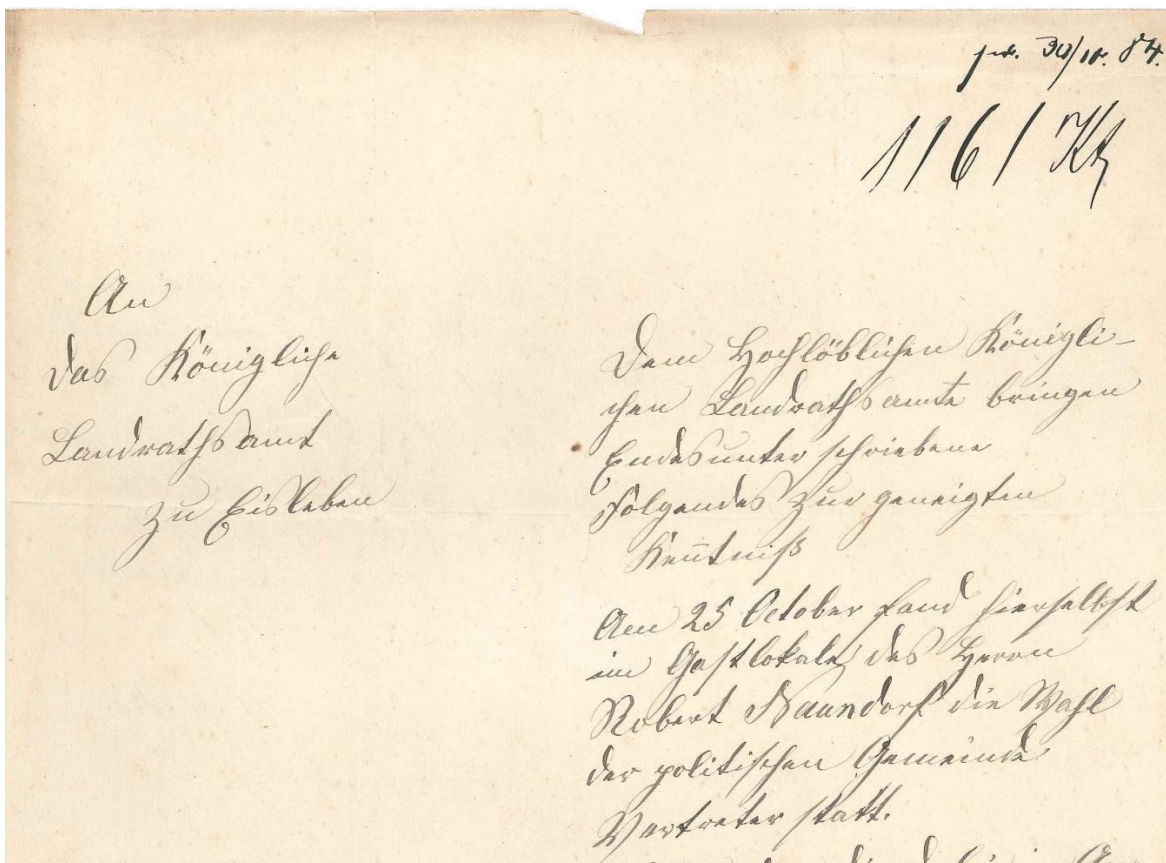 pr. 30/10. 84.
1161 KA
An
das Königliche
Landrathsamt
zu Eisleben
Dem Hochlöblichen Königli-
chen Landrathsamte bringen
Endesunterschriebene
Folgendes zur geneigten
Kentniß
Am 25 October fand hierselbst
im Gastlokale des Herrn
Robert Naundorf die Wahl
der politischen Gemeinde
Vertreter statt.